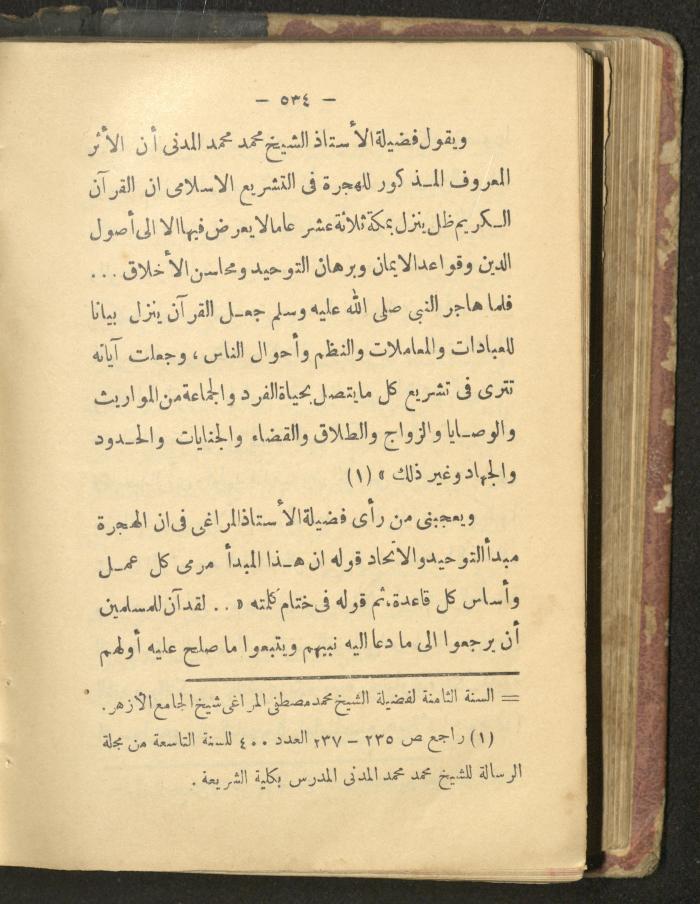 — ٥٣٤ —
ويقول فضيلة الأستاذ الشيخ محمد محمد المدنى أن الأثر
المعروف المذكور للهجرة فى التشريع الاسلامى ان القرآن
الكريم ظل ينزل بمكة ثلاثة عشر عاما لا يعرض فيها الا الى أصول
الدين وقواعد الايمان وبرهان التوحيد ومحاسن الأخلاق ...
فلما هاجر النبى صلى الله عليه وسلم جعل القرآن ينزل بيانا
للعبادات والمعاملات والنظم وأحوال الناس ، وجعلت آياته
تترى فى تشريع كل ما يتصل بحياة الفرد والجماعة من المواريث
والوصايا والزواج والطلاق والقضاء والجنايات والحدود
والجهاد وغير ذلك » (١)
ويعجبنى من رأى فضيلة الأستاذ المراغى فى ان الهجرة
مبدأ التوحيد والاتحاد قوله ان هذا المبدأ مرمى كل عمل
وأساس كل قاعدة، ثم قوله فى ختام كلمته « .. لقد آن للمسلمين
أن يرجعوا الى ما دعا اليه نبيهم ويتبعوا ما صلح عليه أولهم
= السنة الثامنة لفضيلة الشيخ محمد مصطفى المراغى شيخ الجامع الأزهر .
(١) راجع ص ٢٣٥ – ٢٣٧ العدد ٤٠٠ للسنة التاسعة من مجلة
الرسالة للشيخ محمد محمد المدنى المدرس بكلية الشريعة .